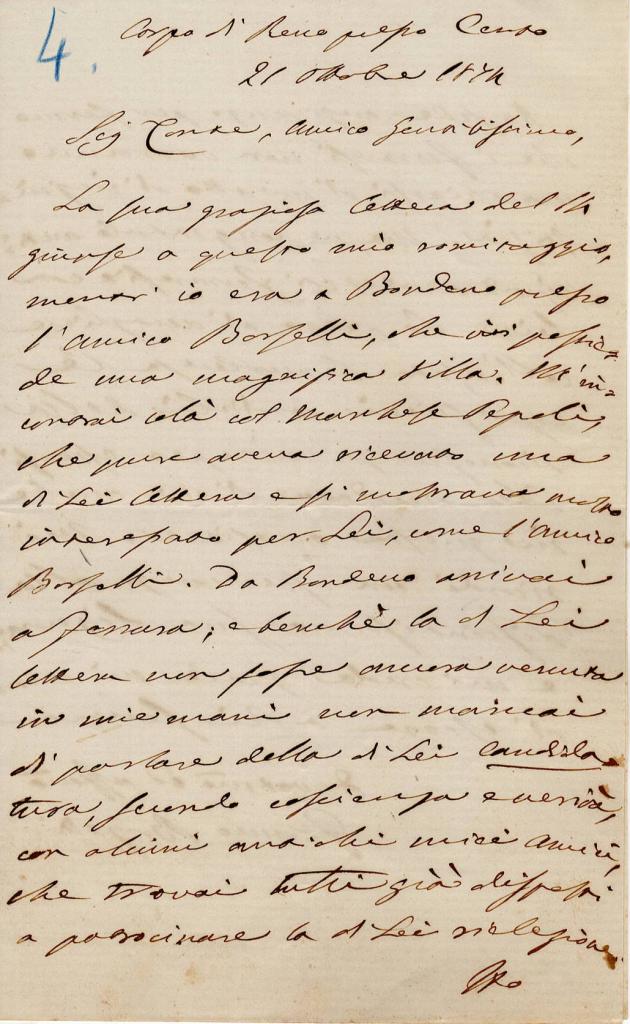 4.
Corpo di Reno presso Cento
21 Ottobre 1874
Sig Conte, amico gentilissimo,
La sua graziosa lettera del 14
giunse a questo mio romitaggio,
mentr' io era a Bondeno presso
l'amico Borselli, che ivi possie=
de una magnifica Villa. M'in=
contrai colà col Marchese Pepoli,
che pure aveva ricevuto una
di Lei lettera e si mostrava molto
interessato per Lei, come l'amico
Borselli. Da Bondeno arrivai
a Ferrara; e benchè la di Lei
lettera non fosse ancora venuta
in mie mani non mancai
di parlare della di Lei candida=
tura, secondo coscienza e verità,
con alcuni antichi miei amici,
che trovai tutti già disposti
a patrocinare la di Lei rielezione.
Ho